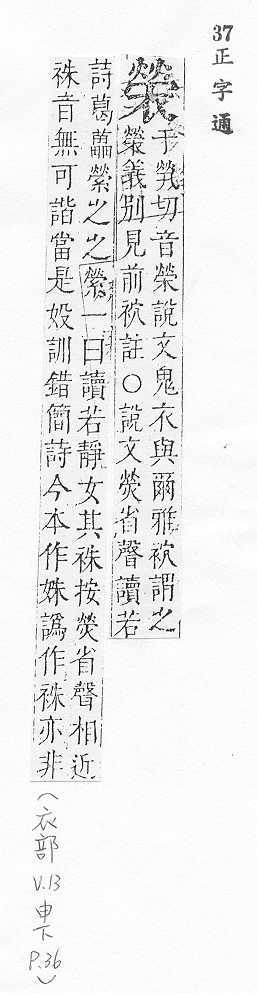 37 正字通
褮
于煢切音榮說文鬼衣與爾雅袕謂之
褮義別見前袕註○說文熒省聲讀若
詩葛藟縈之之縈一曰讀若靜女其袾按熒省聲相近
袾音無可諧當是訓錯簡詩今本作姝譌作袾亦非
(衣部 V.13 申下 P.36)